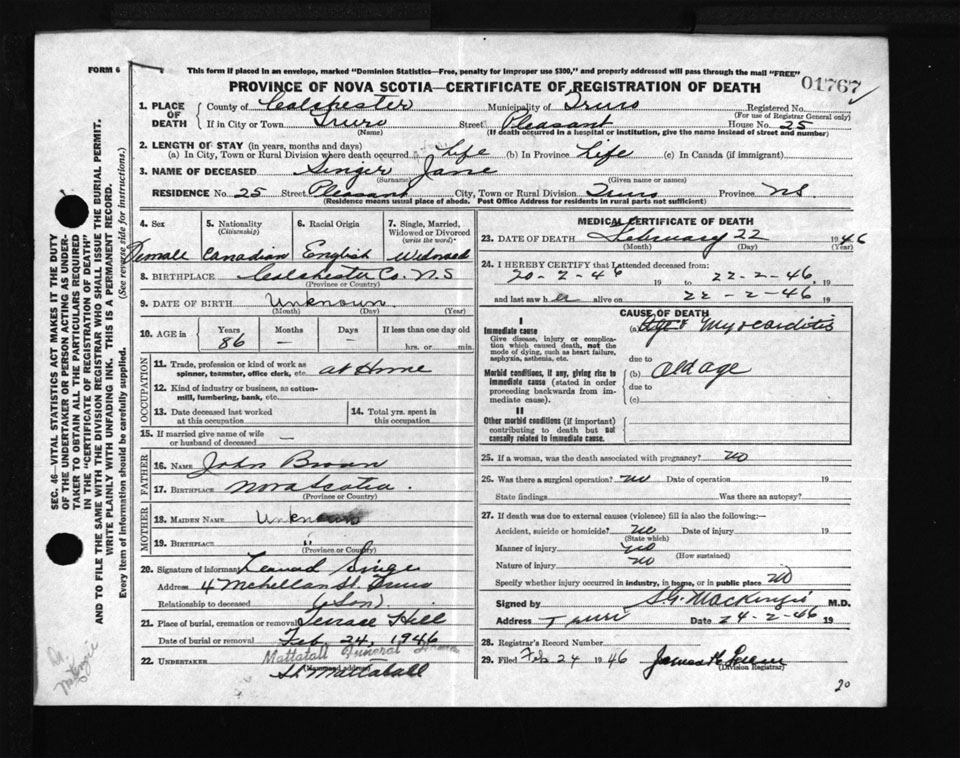 FORM 6
This form if placed in an envelope, marked "Dominion Statistics—Free, penalty for improper use $300," and properly addressed will pass through the mail "FREE"
PROVINCE OF NOVA SCOTIA—CERTIFICATE OF REGISTRATION OF DEATH
01767
1. PLACE OF DEATH County of Colchester Municipality of Truro Registered No.
(For use of Registrar General only)
If in City or Town Truro Street Pleasant House No. 25
(Name) (If death occurred in a hospital or institution, give the name instead of street and number)
2. LENGTH OF STAY (in years, months and days)
(a) In City, Town or Rural Division where death occurred Life (b) In Province Life (c) In Canada (if immigrant)
3. NAME OF DECEASED Singer Jane
(Surname) (Given name or names)
RESIDENCE No. 25 Street Pleasant City, Town or Rural Division Truro Province NS
(Residence means usual place of abode. Post Office Address for residents in rural parts not sufficient)
4. Sex 5. Nationality (Citizenship) 6. Racial Origin 7. Single, Married, Widowed or Divorced (write the word)
Female Canadian English Widowed
8. BIRTHPLACE Colchester Co. N.S
(Province or Country)
9. DATE OF BIRTH Unknown
(Month) (Day) (Year)
10. AGE in Years Months Days If less than one day old
86 — — hrs. or min.
OCCUPATION
11. Trade, profession or kind of work as spinner, teamster, office clerk, etc. at Home
12. Kind of industry or business, as cotton-mill, lumbering, bank, etc.
13. Date deceased last worked at this occupation
14. Total yrs. spent in this occupation
15. If married give name of wife or husband of deceased —
FATHER
16. NAME John Brown
17. BIRTHPLACE Nova Scotia
(Province or Country)
MOTHER
18. MAIDEN NAME Unknown
19. BIRTHPLACE "
(Province or Country)
20. Signature of informant Leonard Singer
Address 4 St. Truro
Relationship to deceased (Son)
21. Place of burial, cremation or removal Terrace Hill
Date of burial or removal Feb 24, 1946
22. UNDERTAKER Mattatall Funeral
(Name and address)
Mattatall
MEDICAL CERTIFICATE OF DEATH
23. DATE OF DEATH February 22 1946
(Month) (Day) (Year)
24. I HEREBY CERTIFY that I attended deceased from:
20-2-46 19 to 22-2-46, 19
and last saw her alive on 22-2-46, 19
CAUSE OF DEATH
I
Immediate cause
Give disease, injury or complication which caused death, not the mode of dying, such as heart failure, asphyxia, asthenia, etc.
(a) Myocarditis
due to
Morbid conditions, if any, giving rise to immediate cause (stated in order proceeding backwards from immediate cause).
(b) old age
due to
(c)
II
Other morbid conditions (if important) contributing to death but not causally related to immediate cause.
25. If a woman, was the death associated with pregnancy? no
26. Was there a surgical operation? no Date of operation 19
State findings Was there an autopsy?
27. If death was due to external causes (violence) fill in also the following:—
Accident, suicide or homicide? no Date of injury 19
(State which)
Manner of injury no
(How sustained)
Nature of injury no
Specify whether injury occurred in industry, in home, or in public place no
Signed by S.G. MacKenzie M.D.
Address Truro Date 24-2-46 19
28. Registrar's Record Number
29. Filed Feb 24 1946 James
(Division Registrar)
20
SEC. 46—VITAL STATISTICS ACT MAKES IT THE DUTY
OF THE UNDERTAKER OR PERSON ACTING AS UNDER-
TAKER TO OBTAIN ALL THE PARTICULARS REQUIRED
IN THE "CERTIFICATE OF REGISTRATION OF DEATH"
AND TO FILE THE SAME WITH THE DIVISION REGISTRAR WHO SHALL ISSUE THE BURIAL PERMIT.
WRITE PLAINLY WITH UNFADING INK. THIS IS A PERMANENT RECORD.
Every item of information should be carefully supplied. (See reverse side for instructions.)
Dr. McKenzie